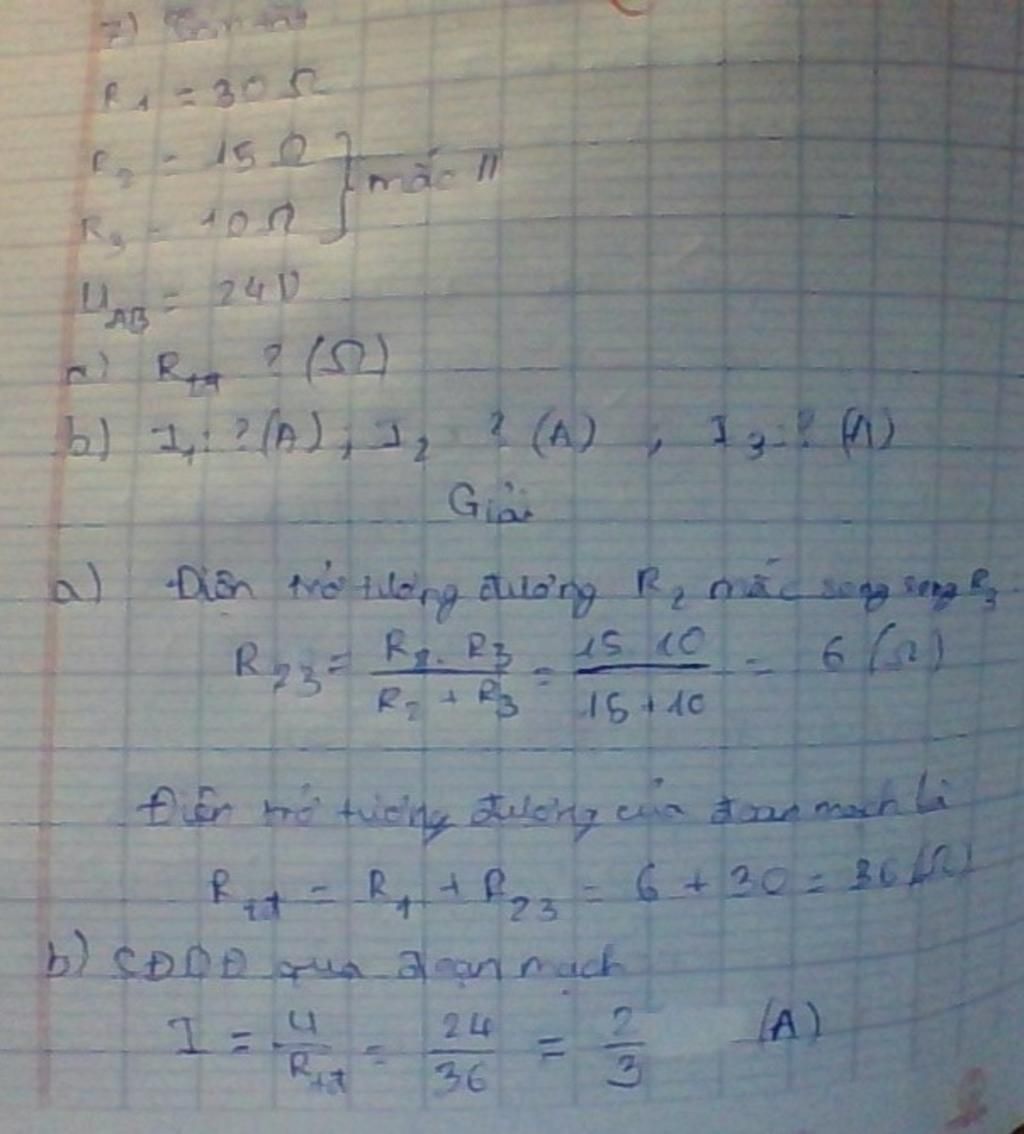 7)
R1 = 30 Ω
R2 = 15 Ω } mắc //
R3 = 10 Ω
UAB = 24 V
a) Rtđ ? (Ω)
b) I1 : ? (A) ; I2 ? (A) , I3 : ? (A)
Giải
a) Điện trở tương đương R2 mắc song song R3
R23 = R2 . R3 / R2 + R3 = 15 10 / 15 + 10 = 6 (Ω)
Điện trở tương đương của đoạn mạch là
Rtđ = R1 + R23 = 6 + 30 = 36 (Ω)
b) CĐDĐ qua đoạn mạch
I = U / Rtđ = 24 / 36 = 2 / 3 (A)